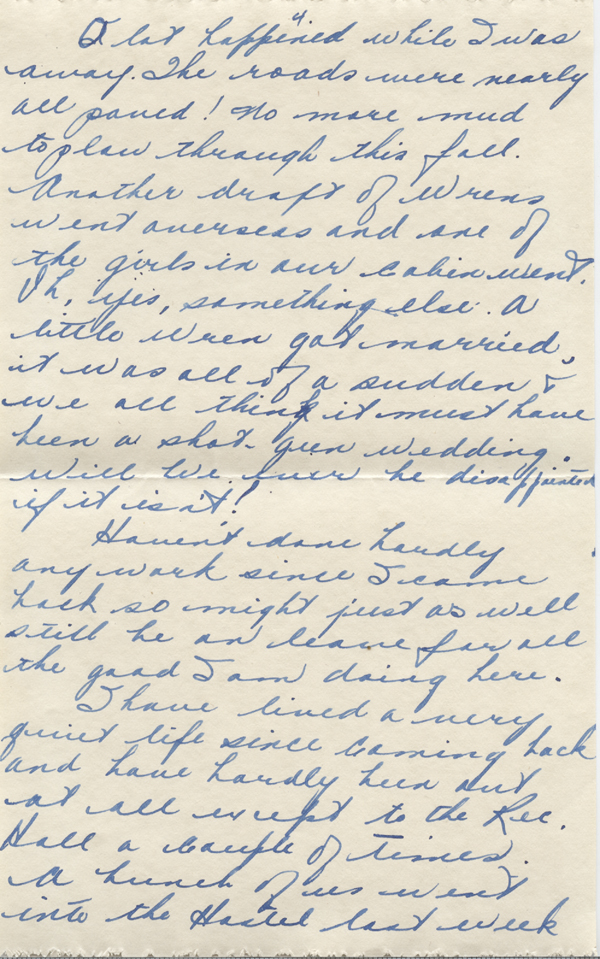 4.
A lot happened while I was
away. The roads were nearly
all paved! No more mud
to plow through this fall.
Another draft of Wrens
went overseas and one of
the girls in our cabin went.
Oh, yes, something else. A
little Wren got married,
it was all of a sudden &
we all think it must have
been a shot-gun wedding.
Will we ever be disappointed
if it isn't!
Haven't done hardly
any work since I came
back so might just as well
still be on leave for all
the good I am doing here.
I have lived a very
quiet life since coming back
and have hardly been out
at all except to the Rec.
Hall a couple of times.
A bunch of us went
into the Hostel last week